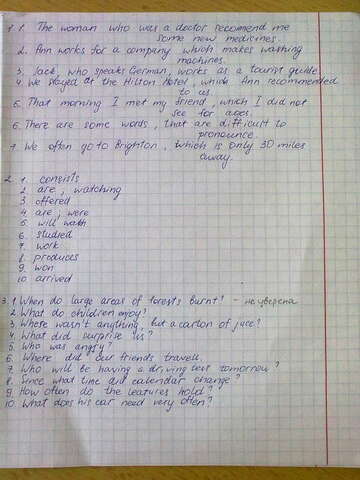 1. 1. The woman who was a doctor recomend me
some new medicines.
2. Ann works for a company which makes washing
machines.
3. Jack, who speaks German, works as a tourist guide
4. We stayed at the Hilton Hotel, which Ann recommended
to us.
5. That morning I met my friend, which I did not
see for ages.
6. There are some words, that are difficult to
pronounce.
7. We often go to Brighton, which is only 30 miles
away.
2. 1 consists
2 are, watching
3 offered
4 are, were
5 will
6 studied
7 work
8 produces
9 won
10 arrived
3. 1 When do large areas of forests burnt? - не уверена
2 What do children enjoy?
3 Whose wasn't anything, but a carton of juce?
4 What did surprise us?
5 Who was angry?
6 Where did our friends travell.
7 Who will be having a driving test tomorrow?
8 Since what time did calendar change?
9 How often do the leatures hold?
10 What does his car need very often?